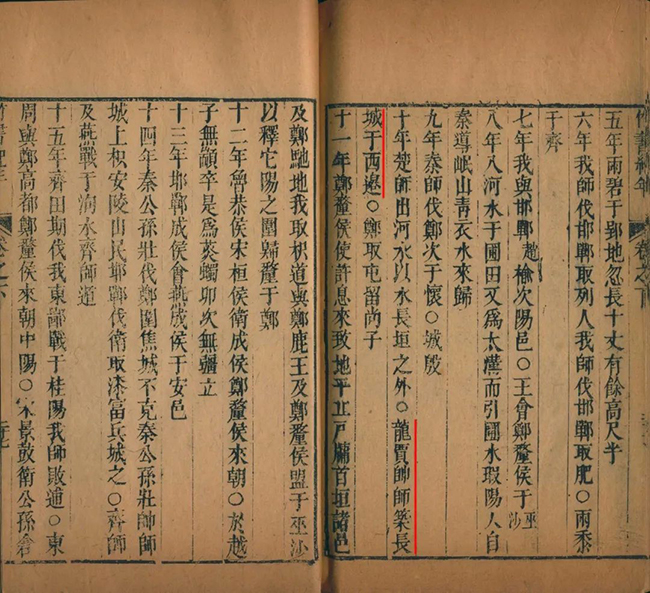 竹書紀年 卷之下
五年雨碧于郢地忽長十丈有餘高尺半
六年我師伐邯鄲取列人我師伐邯鄲取肥〇雨黍
于齊
七年我與邯鄲趙榆次陽邑〇王會鄭釐侯于巫沙
八年入河水于圃田又爲大溝而引圃水瑕陽人自
秦導岷山青衣水來歸
九年秦師伐鄭次于懷〇城殷
十年楚師出河水以水長垣之外〇龍賈帥師築長
城于西邊〇鄭取屯留尚子
十一年鄭釐侯使許息來致地平丘戸牖首垣諸邑
及鄭馳地我取枳道與鄭鹿王及鄭釐侯盟于巫沙
以釋它陽之圍歸釐于鄭
十二年魯恭侯宋桓侯衛成侯鄭釐侯來朝〇於越
子無顓卒是爲菼蠋卯次無疆立
十三年邯鄲成侯會燕成侯于安邑
十四年秦公孫壯伐鄭圍焦城不克秦公孫壯帥師
城上枳安陵山民邯鄲伐衛取漆富丘城之〇齊師
及燕戰于泃水齊師遁
十五年齊田期伐我東鄙戰于桂陽我師敗逋〇東
周與鄭高都鄭釐侯來朝中陽〇宋景𢽾衛公孫倉